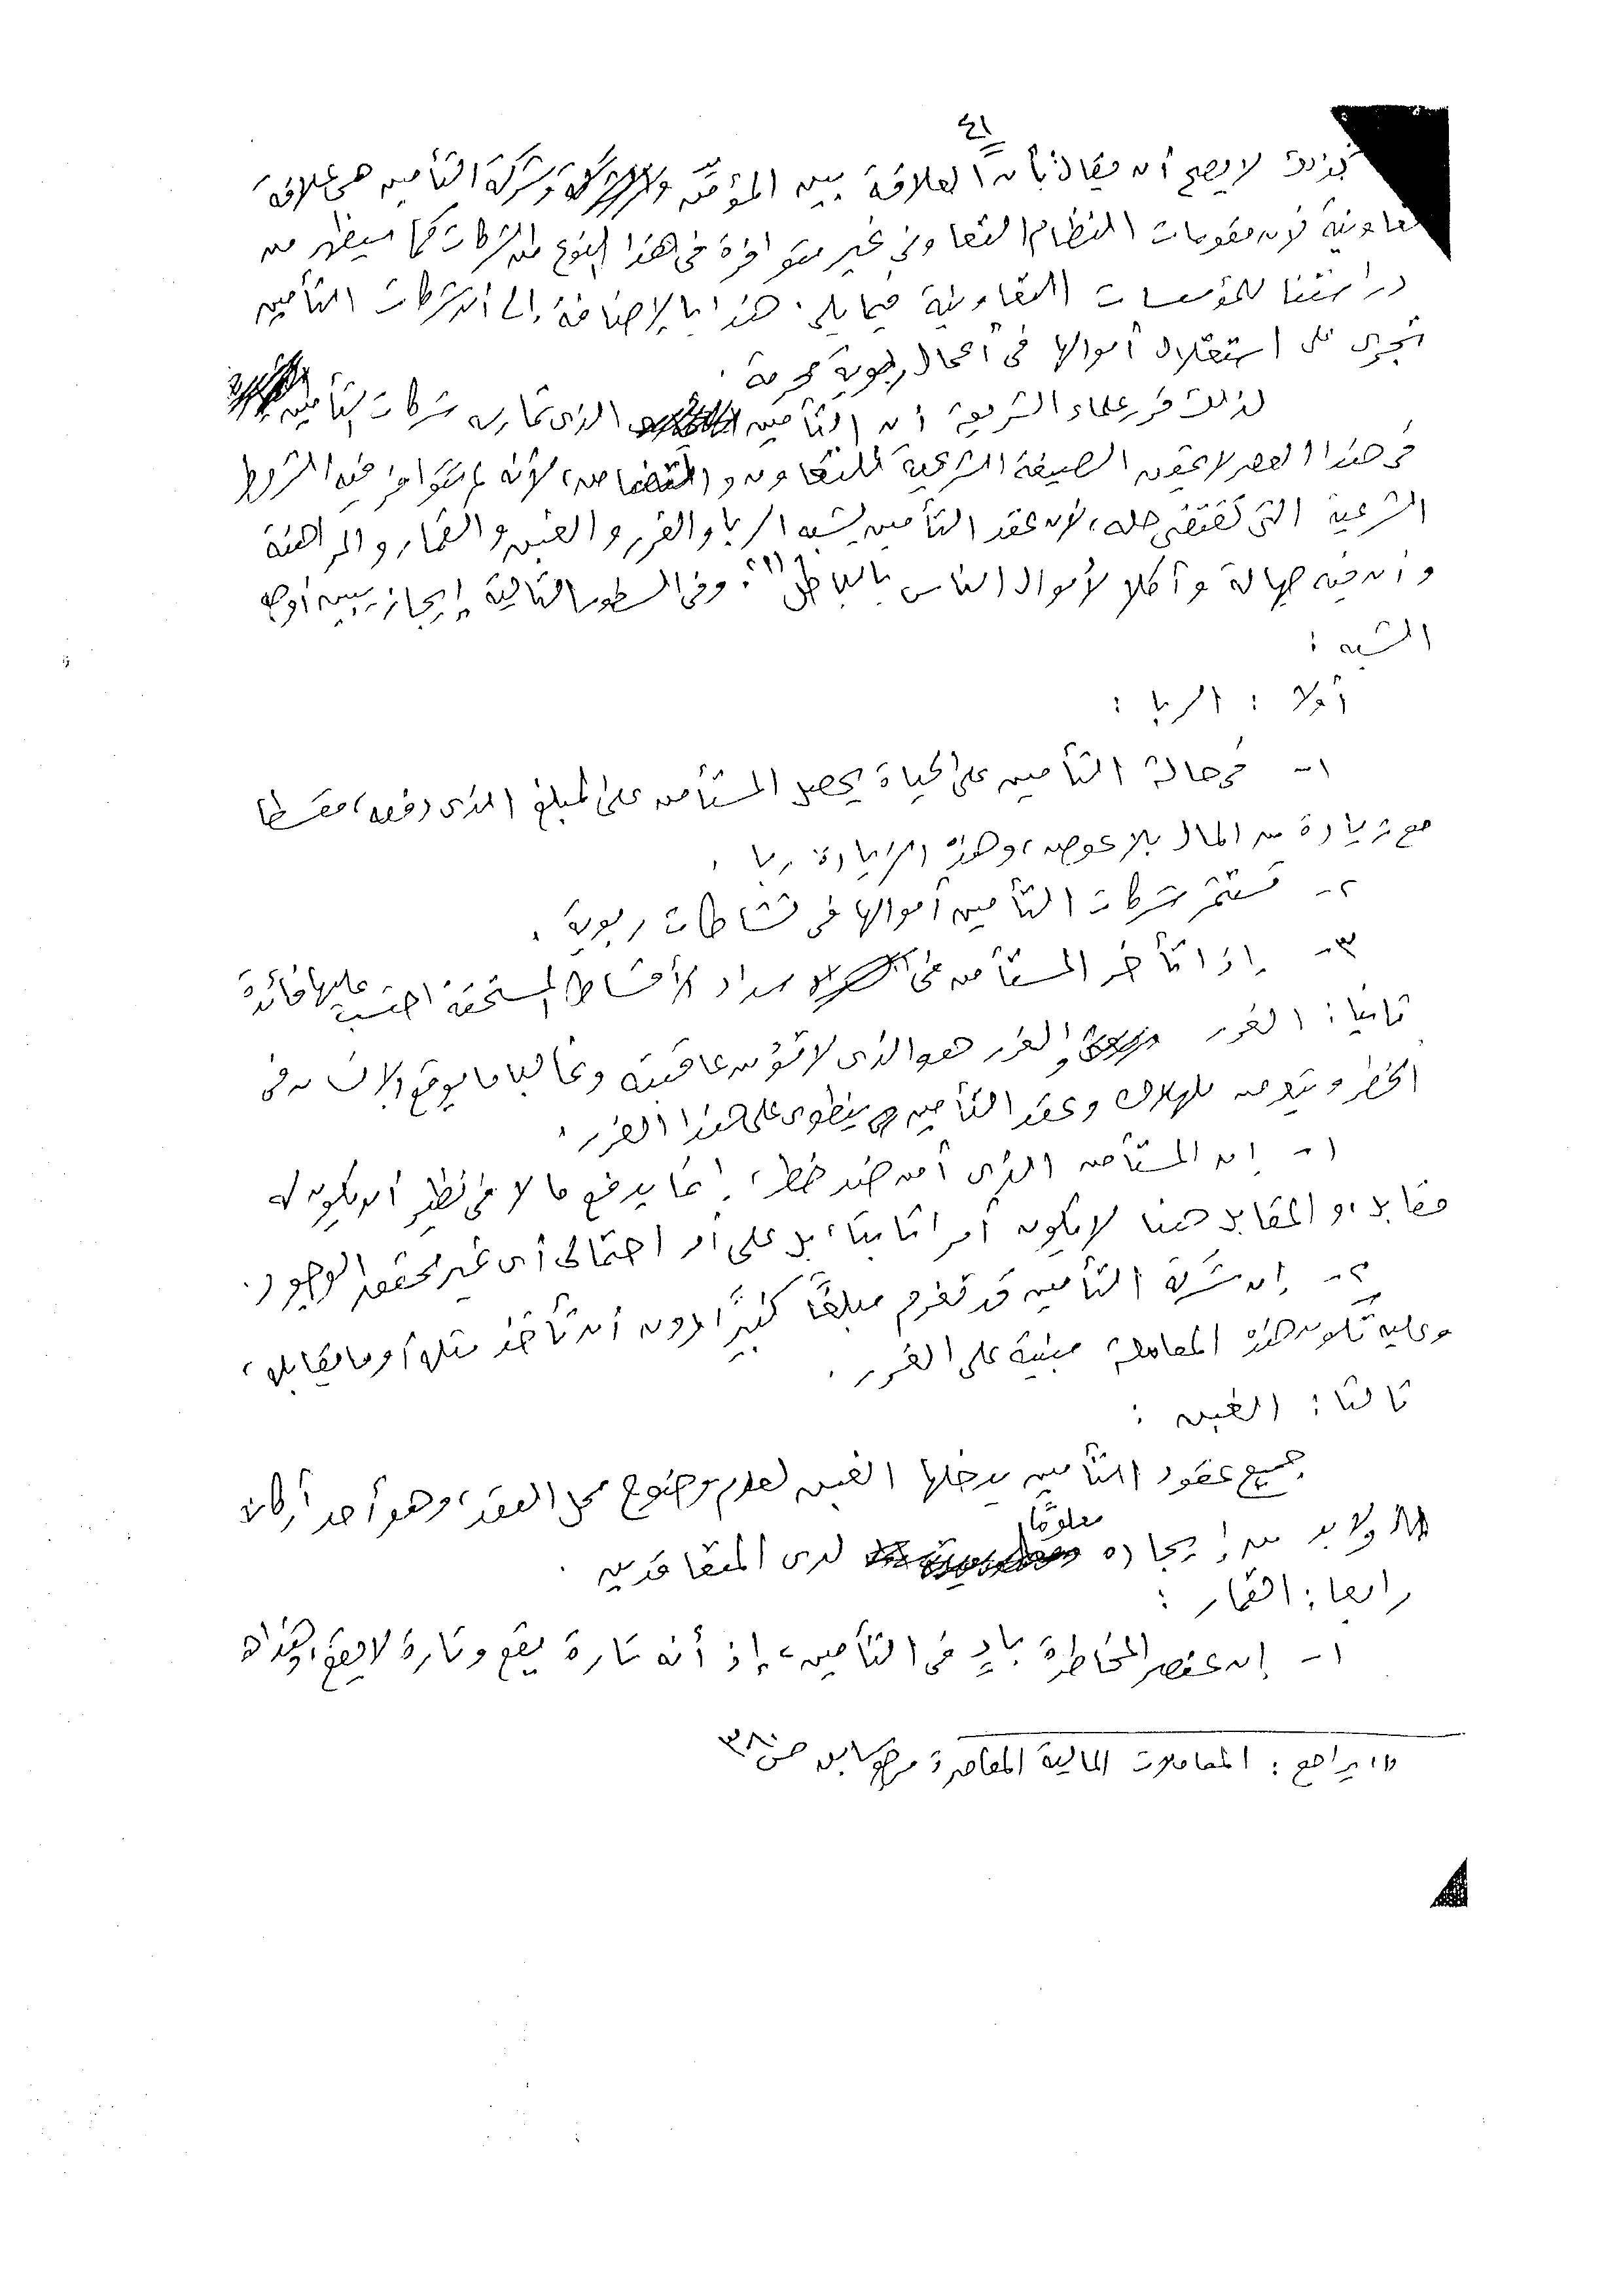 ٤١
كذلك لا يصح أن يقال بأن العلاقة بين المؤمَّن وشركة التأمين هى علاقة
تعاونية لأن مقومات النظام التعاونى غير متوافرة فى هذا النوع من الشركات كما سيظهر من
دراستنا للمؤسسات التعاونية فيما يلى. هذا بالإضافة إلى أن شركات التأمين
تجرى على استغلال أموالها فى أعمال ربوية محرمة .
لذلك قرر علماء الشريعة أن التأمين الذى تمارسه شركات التأمين
فى هذا العصر لا يحقق الصيغة الشرعية للتعاون والتضامن، لأنه لم تتوافر فيه الشروط
الشرعية التى تقتضى حله، لأن عقد التأمين يشبه الربا والغرر والغبن والقمار والمراهنة
وأن فيه جهالة وأكلا لأموال الناس بالباطل (١). وفى السطور التالية إيجاز يبين أوجه
الشبه :
أولا : الربا :
١- فى حالة التأمين على الحياة يحصل المستأمن على المبلغ الذى دفعه، مقسطا
مع زيادة من المال بلا عوض، وهذه الزيادة ربا .
٢- تستثمر شركات التأمين أموالها فى نشاطات ربوية .
٣- إذا تأخر المستأمن فى سداد الأقساط المستحقة احتسب عليها فائدة
ثانيا : الغرر والغرر هو الذى لا تؤمن عاقبته وغالبا ما يوقع الإنسان فى
الخطر ويتعرض للهلاك وعقد التأمين ينطوى على هذا الغرر .
١- إن المستأمن الذى أمن ضد خطر، إنما يدفع مالا فى نظير أن يكون له
مقابل، والمقابل هنا لا يكون أمرا ثابتا، بل على أمر احتمالى أى غير محقق الوجود.
٢- إن شركة التأمين قد تغرم مبلغًا كبيرًا دون أن تأخذ مثله أو ما يقابله،
وعليه تكون هذه المعاملة مبنية على الغرر .
ثالثا : الغبن :
جميع عقود التأمين يدخلها الغبن لعدم وضوح محل العقد، وهو أحد أركانه
ولا بد من إيجاده معلومًا لدى المتعاقدين .
رابعا : القمار :
١- إن عنصر المخاطرة بادٍ فى التأمين، إذ أنه تارة يقع وتارة لا يقع، وهذا
(١) يراجع : المعاملات المالية المعاصرة مرجع سابق ص ٣٨٠